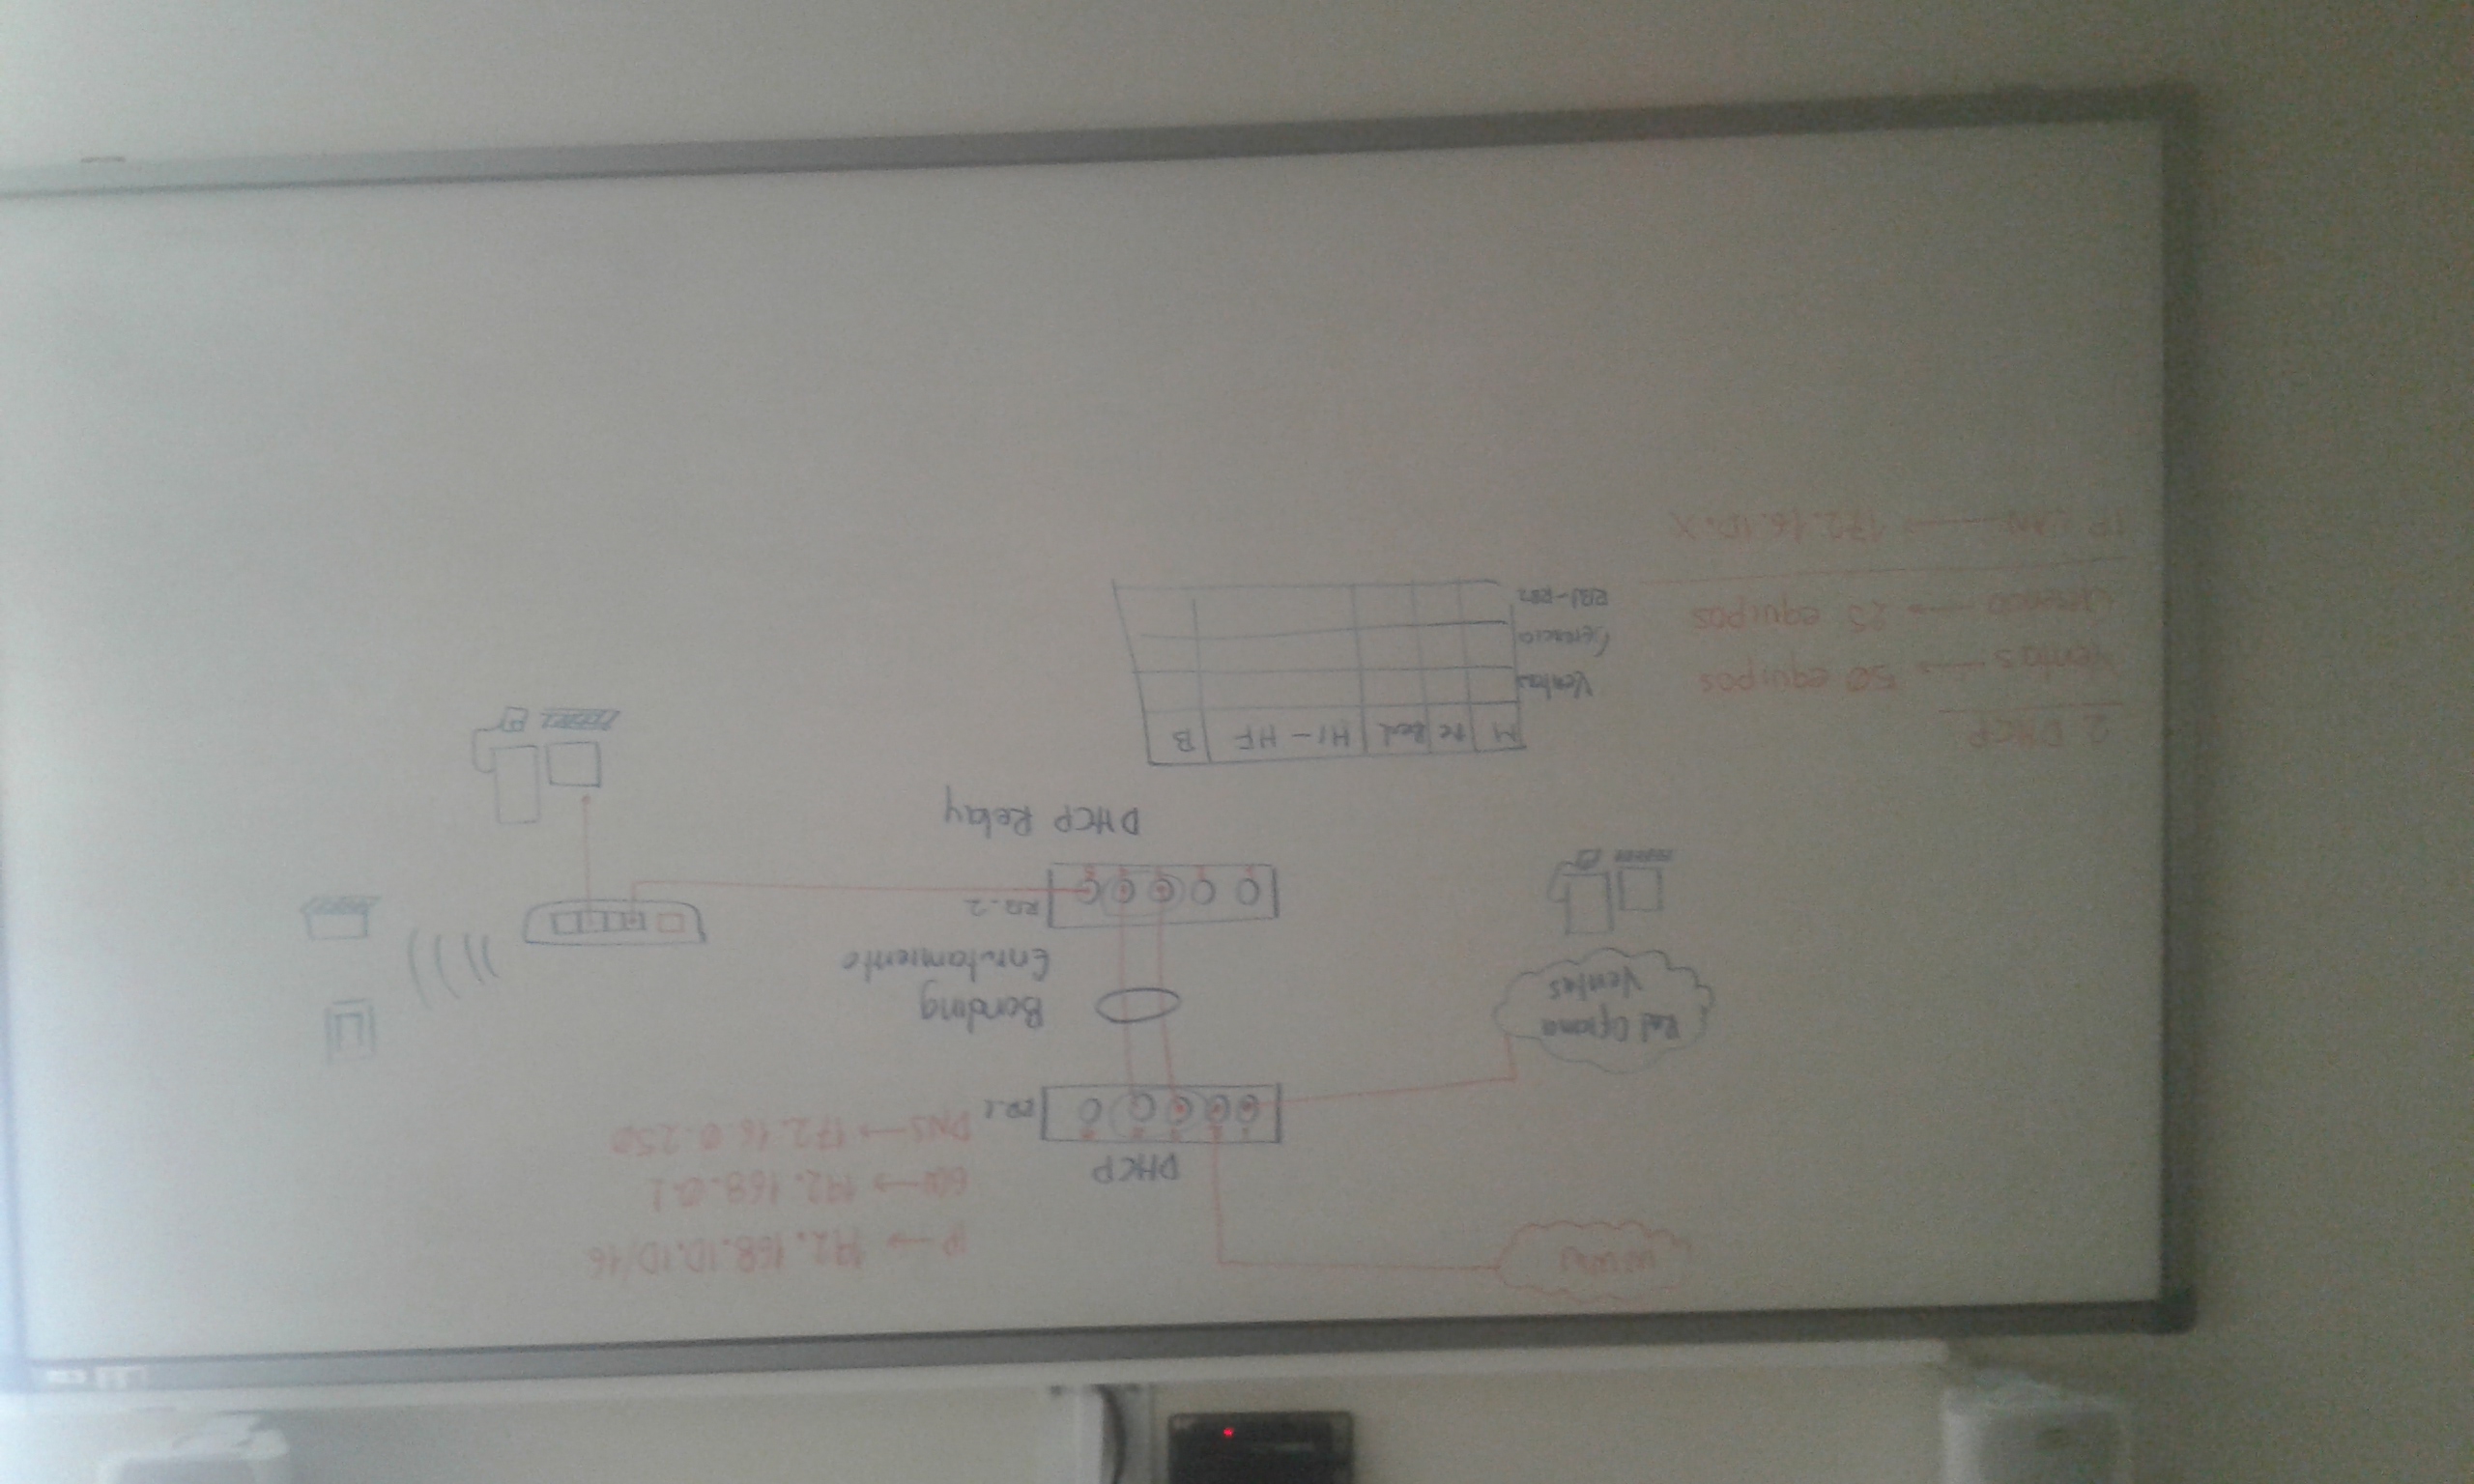 WWW
IP → 192.168.ID.ID/16
GW → 192.168.0.1
DNS → 172.16.0.250
DHCP
RB-1
Red Oficina
Ventas
Bonding
Enrutamiento
RB-2
DHCP Relay
2 DHCP
Ventas → 50 equipos
Gerencia → 25 equipos
IP LAN → 172.16.ID.X
M Re Red HI - HF B
Ventas
Gerencia
RB1-RB2